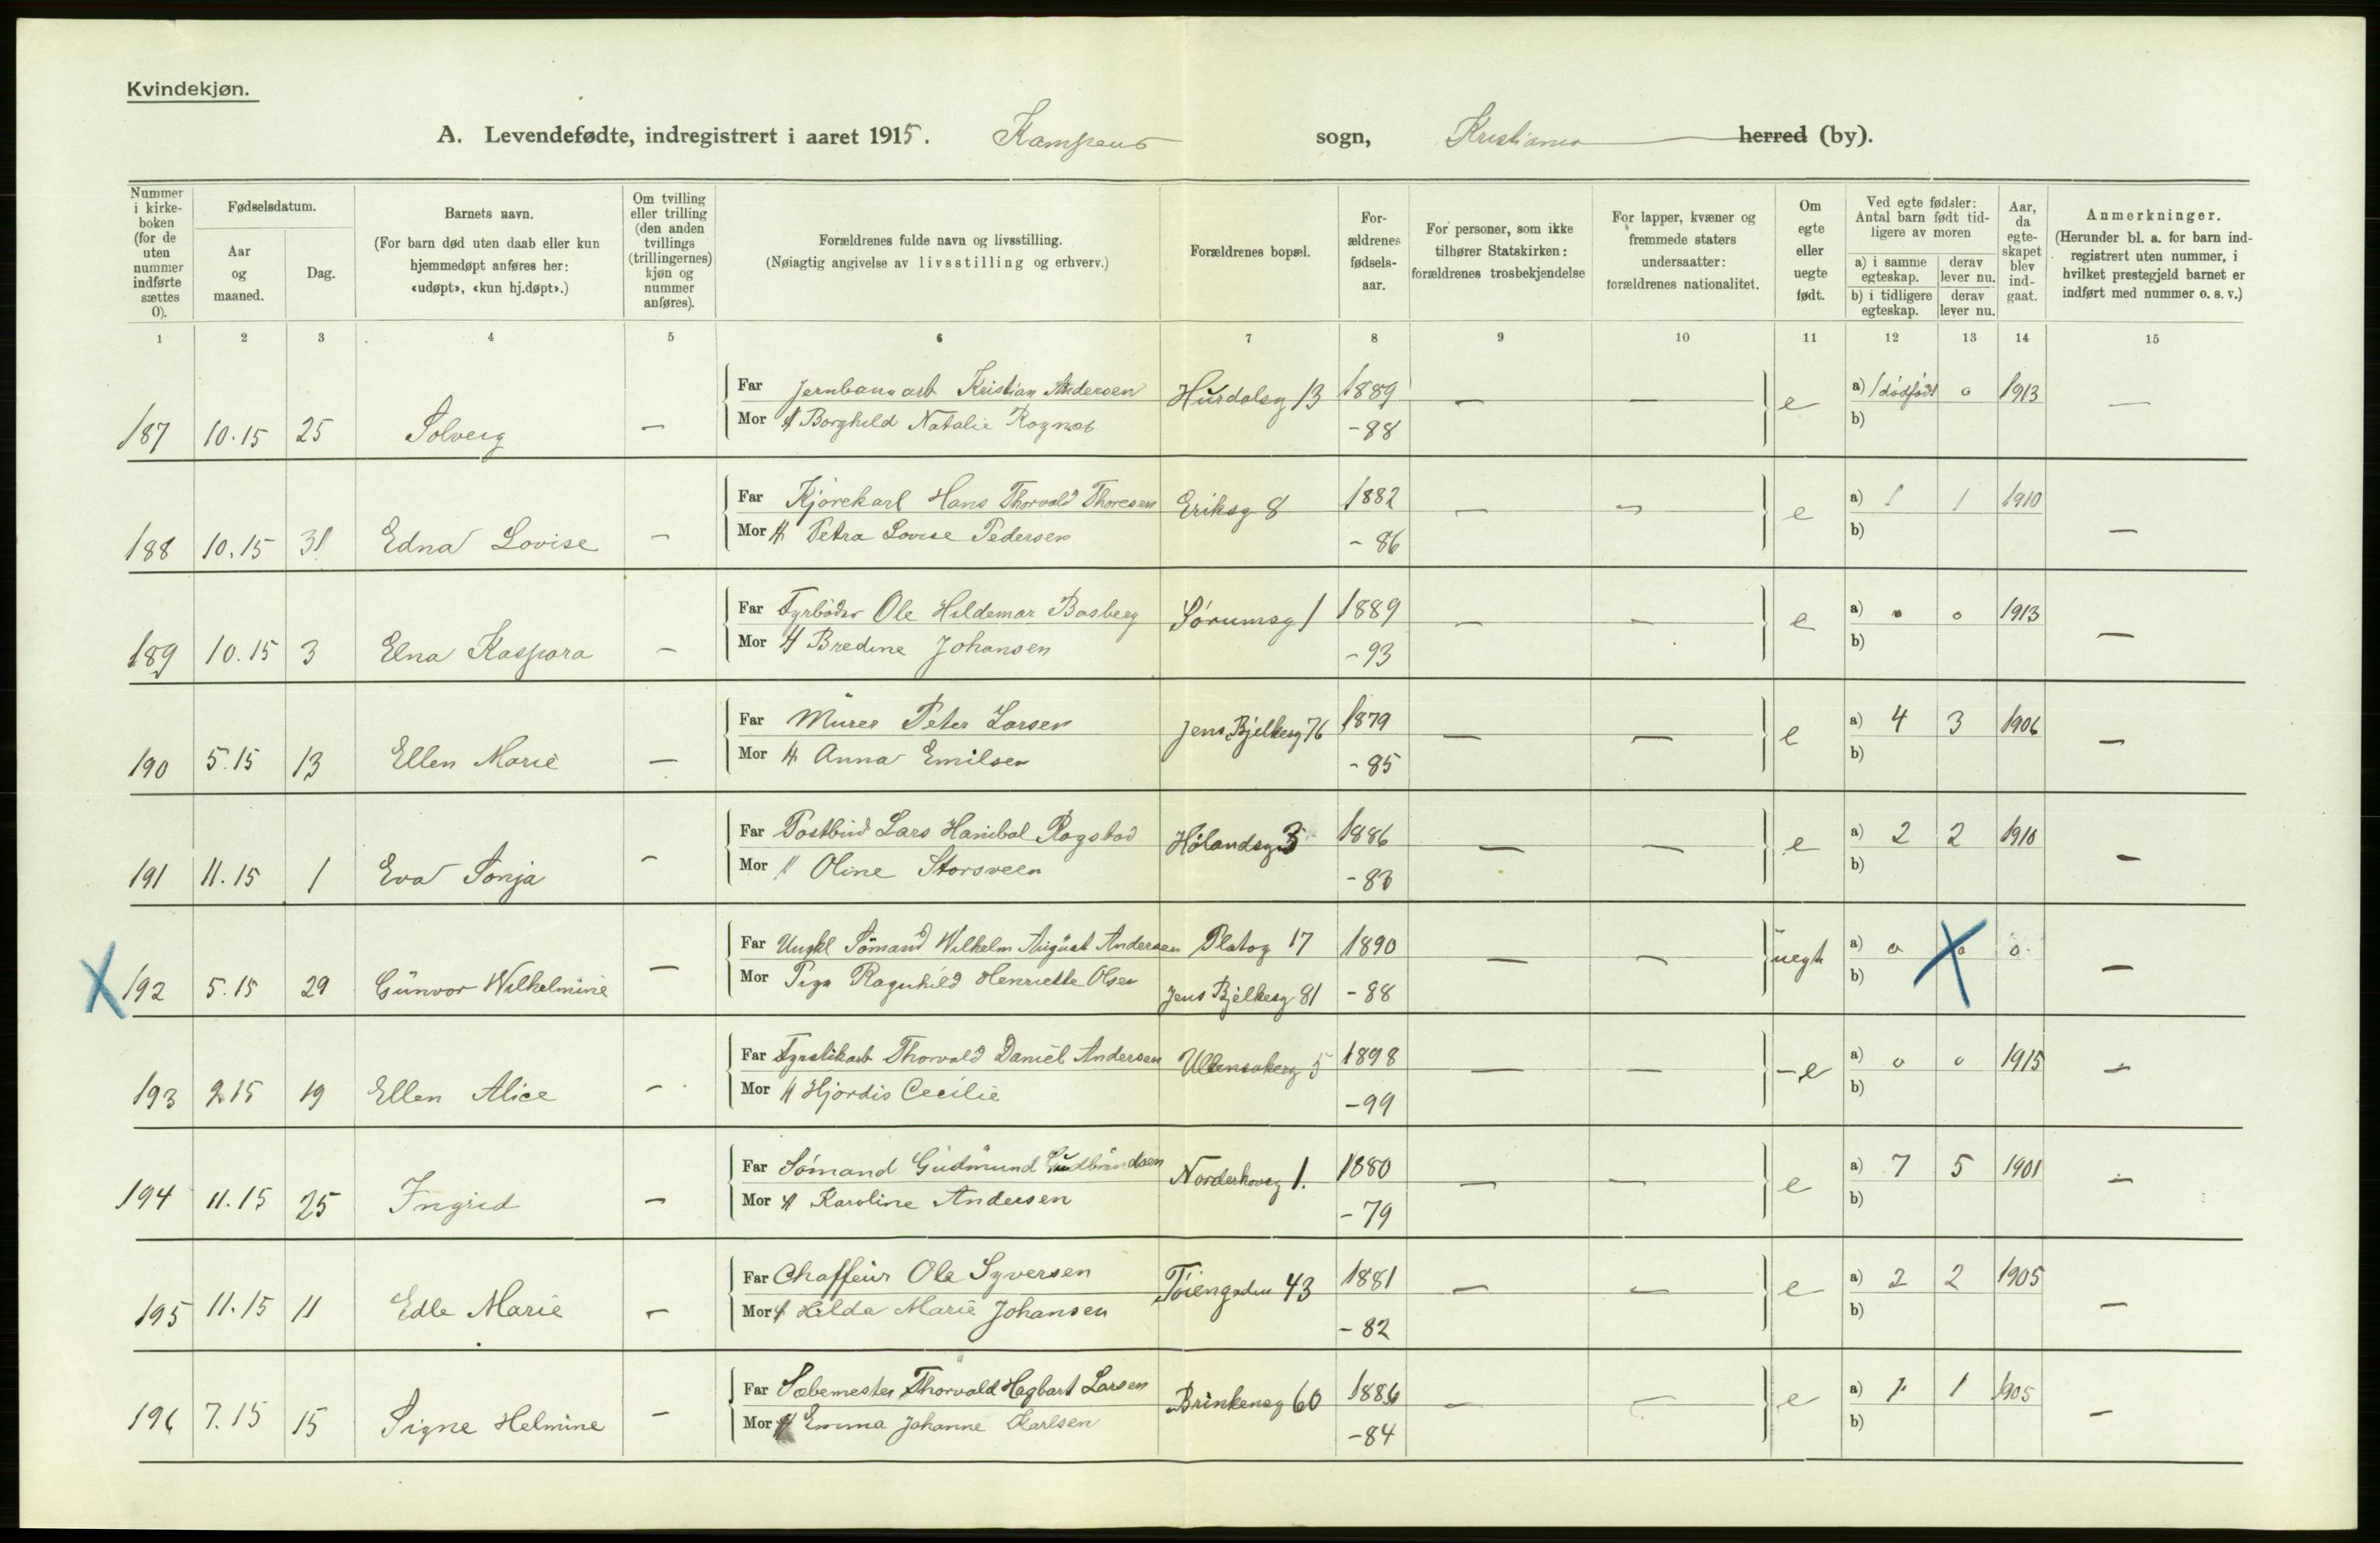 Kvindekjøn.
A. Levendefødte, indregistrert i aaret 1915. Kampens sogn, Kristiania herred (by).
Nummer i kirkeboken (for de uten nummer indførte sættes 0).
Fødselsdatum.
Aar og maaned.
Dag.
Barnets navn.
(For barn død uten daab eller kun hjemmedøpt anføres her: «udøpt», «kun hj.døpt».)
Om tvilling eller trilling (den anden tvillings (trillingernes) kjøn og nummer anføres).
Forældrenes fulde navn og livsstilling.
(Nøiagtig angivelse av livsstilling og erhverv.)
Forældrenes bopæl.
For-ældrenes fødsels-aar.
For personer, som ikke tilhører Statskirken: forældrenes trosbekjendelse
For lapper, kvæner og fremmede staters undersaatter: forældrenes nationalitet.
Om egte eller uegte født.
Ved egte fødsler: Antal barn født tid-ligere av moren
a) i samme egteskap. derav lever nu.
b) i tidligere egteskap. derav lever nu.
Aar, da egte-skapet blev ind-gaat.
Anmerkninger.
(Herunder bl. a. for barn ind-registrert uten nummer, i hvilket prestegjeld barnet er indført med nummer o. s. v.)
1 2 3 4 5 6 7 8 9 10 11 12 13 14 15
Far Jernbanearb Kristian Andersen Hurdalsg 13 1889 — — e a) 1 dødfødt 0 1913 —
187 10.15 25 Solveig — Mor H Borghild Natalie -88 b)
Far Kjørekarl Hans Thorvald Thoresen Eriksg 8 1882 — — e a) 1 1 1910
188 10.15 31 Edna Lovise — Mor H Petra Lovise Pedersen - 86 b) —
Far Fyrbøder Ole Hildemar Basberg Sörumsg 1 1889 — — e a) 0 0 1913
189 10.15 3 Elna Kaspara — Mor H Bredine Johansen -93 b) —
Far Murer Peter Larsen Jens Bjelkesg 76 1879 — — e a) 4 3 1906
190 5.15 13 Ellen Marie — Mor H Anna Emilsen -85 b) —
Far Postbud Lars Hanibal Rogstad Hölandsg 3 1886 — — e a) 2 2 1910
191 11.15 1 Eva Sonja — Mor H Oline Storsveen b) —
Far Ungkl Sömand Wilhelm August Andersen Platog 17 1890 — — uegte a) 0 0 0
X 192 5.15 29 Gunvor Wilhelmine — Mor Pige Ragnhild Henriette Olsen Jens Bjelkesg 81 - 88 b) X —
Far Thorvald Daniel Andersen Ullensakerg 5 1898 — — -e a) 0 0 1915
193 2.15 19 Ellen Alice — Mor H Hjordis Cecilie -99 b) —
Far Sömand Gudmund Gudbrandsen Norderhovg 1. 1880 — — e a) 7 5 1901
194 11.15 25 Ingrid — Mor H Karoline Andersen - 79 b) —
Far Chaffeur Ole Syversen Töiengaden 43 1881 — — e a) 2 2 1905
195 11.15 11 Edle Marie — Mor H Hilda Marie Johansen - 82 b) —
Far Sæbemester Thorvald Hagbart Larsen Brinkensg 60 1886 — — e a) 1 1 1905
196 7.15 15 Signe Helmine — Mor H Emma Johanne Karlsen -84 b) —